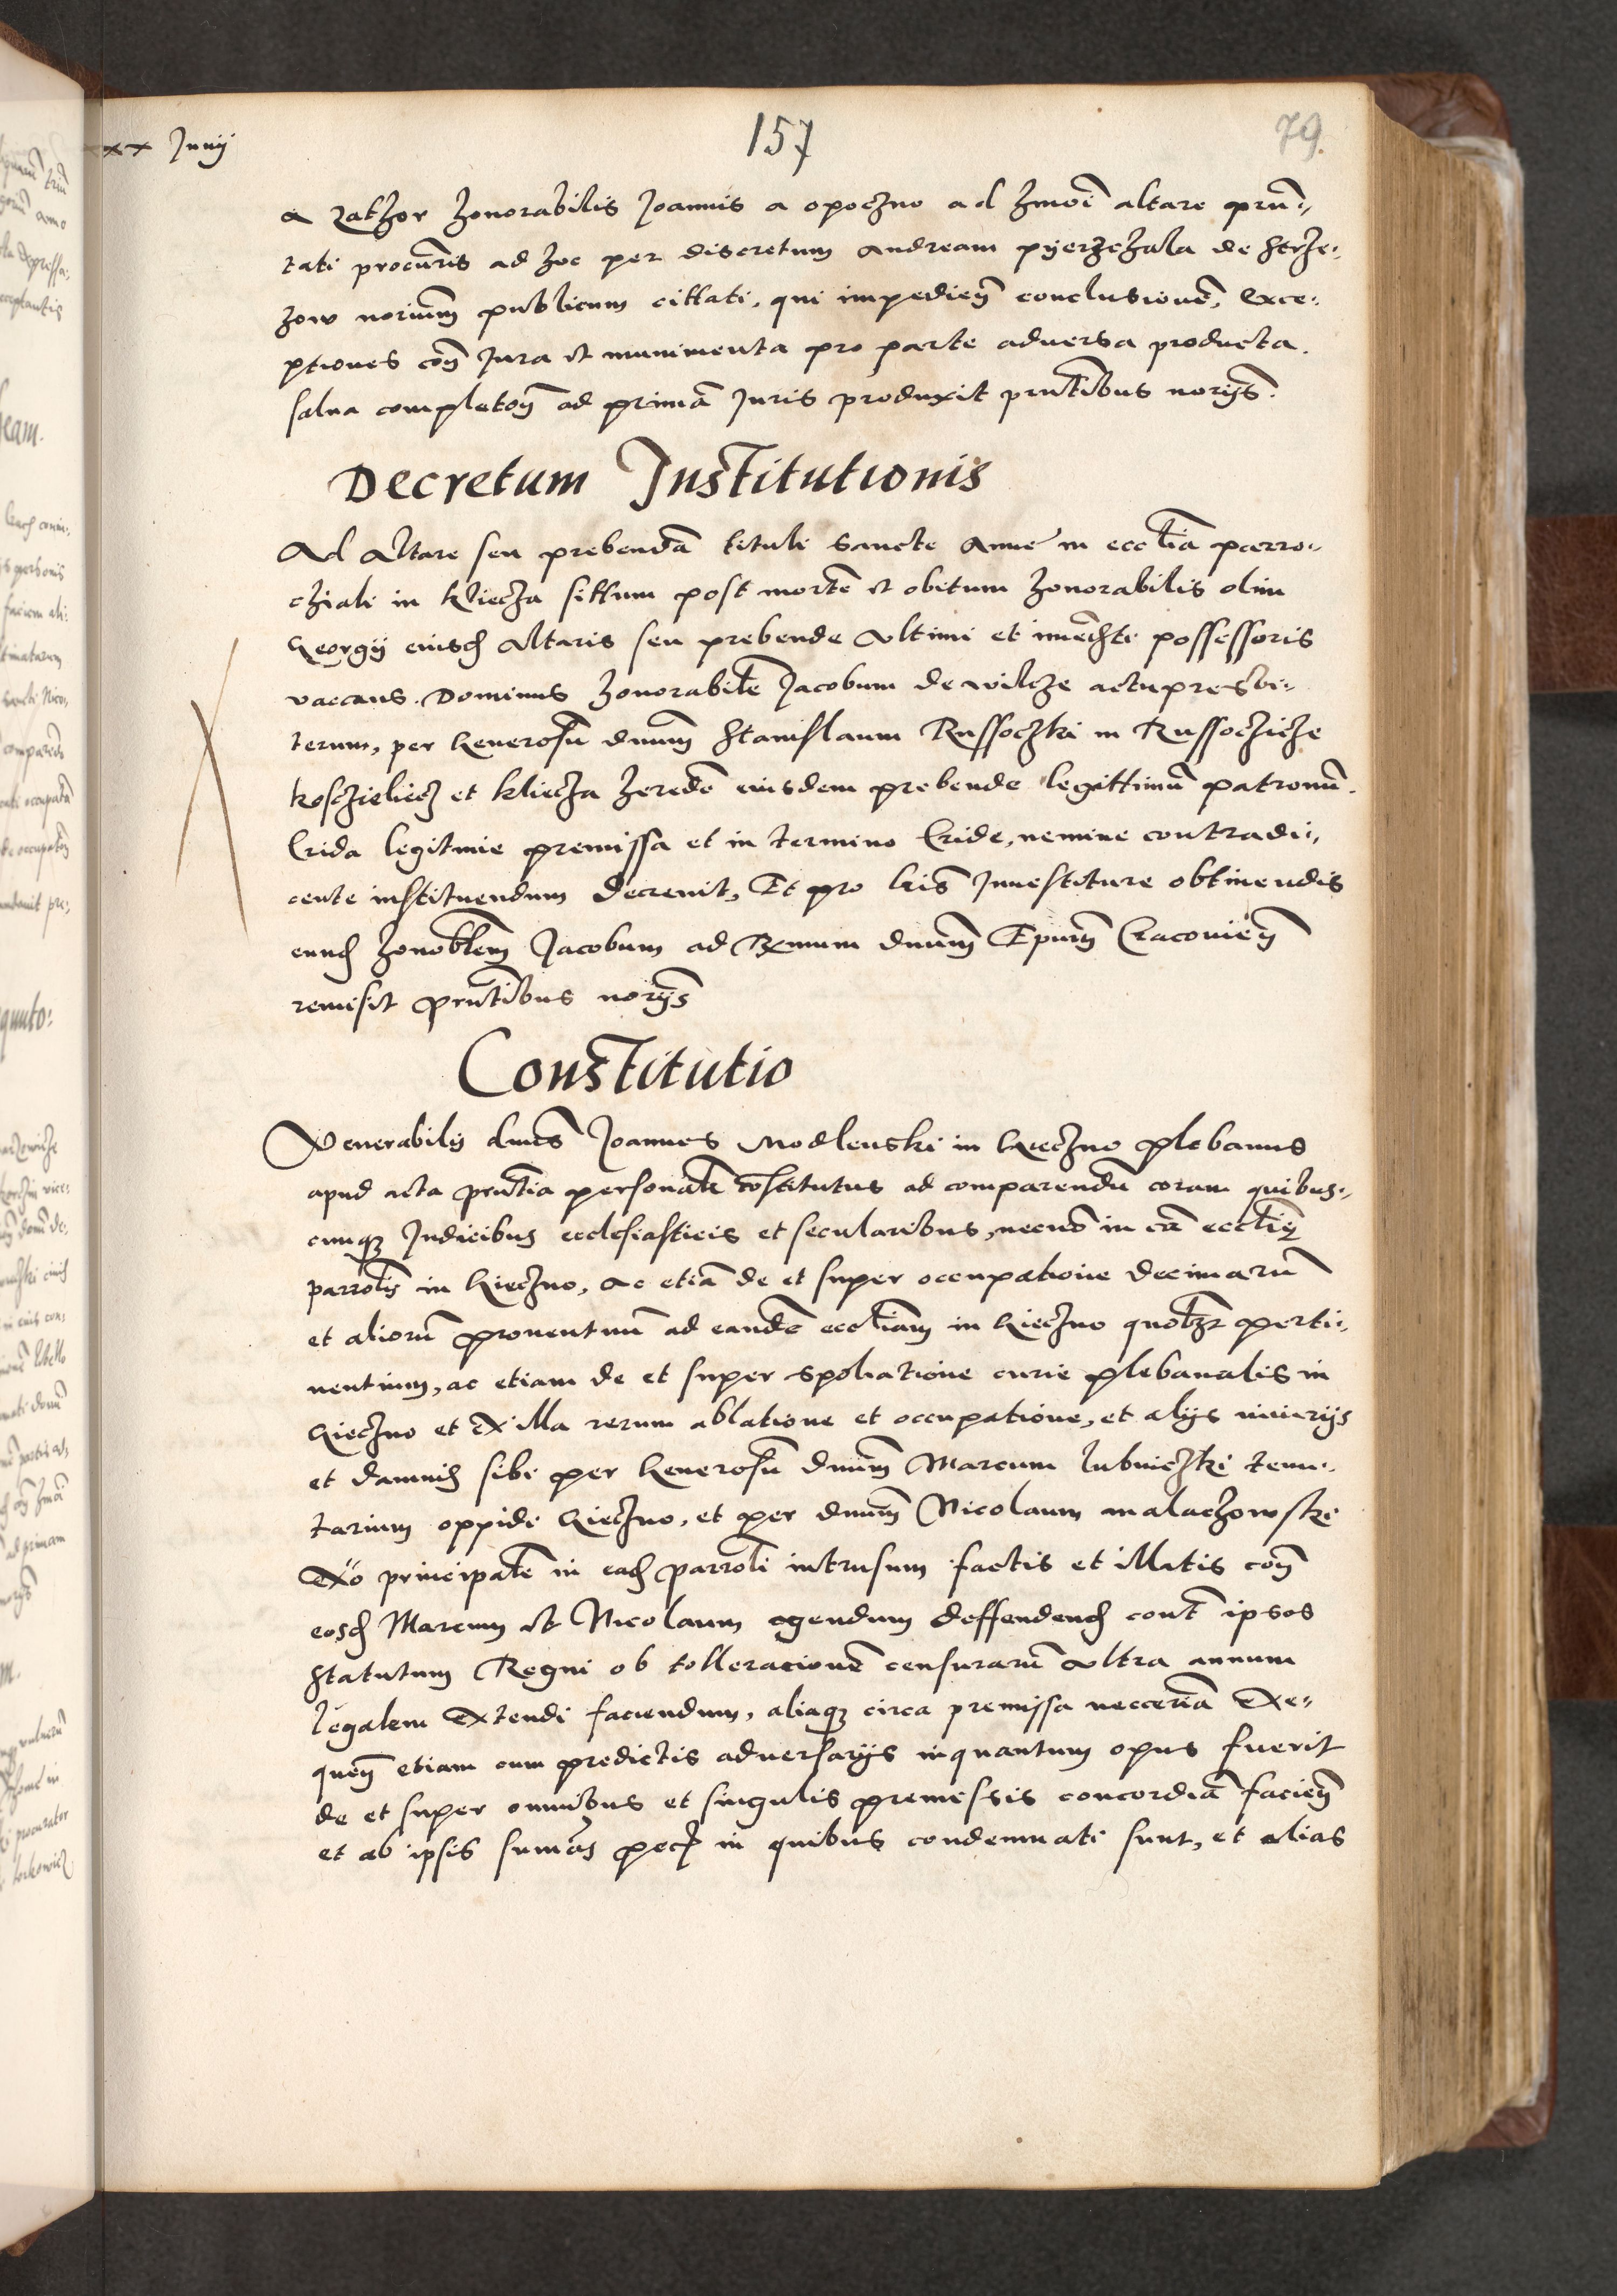 xxx Junij
157
79.
a Zathor honorabilis Joannis a opoczno ad hmoi altare prñ-
tati procuris ad hoc per discretum Andream pyerzchala de strze-
zow norium publicum cittati, qui impedieñ conclusionē, Exce-
ptiones coñ Jura et munimenta pro parte adversa producta.
salva completoñ ad primā Juris produxit prñtibus norijs.
Decretum Institutionis
Ad Altare seu prebendā tituli sancte Anne in eccliā parro-
chiali in kliecza sittum post mortē et obitum honorabilis olim
Georgij eiusd Altaris seu prebende Ultimi et immediati possessoris
vaccans. Dominus honorabilē Jacobum de wilcze actu presbi-
terum, per Generosū dnum Stanislaum Russoczki in Russoczicze
kosczieliecz et kliecza heredē eiusdem prebende legittimū patronū.
Crida legitime premissa et in termino Cride, nemine contradi-
cente instituendum decrevit, Et pro lris Investiture obtinendis
eund honoblem Jacobum ad Rmum dnum Epum Cracovieñ
remisit prñtibus norijs
Constitutio
Venerabilis dnus Joannes Modlenski in Gieczno plebanus
apud acta prñtia personalr cōstitutus ad comparendū coram quibus-
cunqz Judicibus ecclesiasticis et secularibus, necnō in cā eccliē
parrolis in Gieczno, ac etiā de et super occupatione decimarū
et aliorū proventuū ad eandē eccliam in Gieczno quolzt perti-
nentium, ac etiam de et super spoliatione curie plebanalis in
Gieczno et Ex illa rerum ablatione et occupatione, et alijs iniurijs
et damnis sibi per Generosū dnum Marcum lubniczki tenu-
tarium oppidi Gieczno, et per dnum Nicolaum malachowski
Exō principalē in ead parroli intrusum factis et illatis coñ
eosd Marcum et Nicolaum agendum deffendend cont ipsos
statutum Regni ob tolleracionē censurarū Ultra annum
legalem Extendi faciendum, aliaqz circa premissa necceriā Exe-
queñ etiam cum predictis adversarijs inquantum opus fuerit
de et super omnibus et singulis premissis concordiā facieñ
et ab ipsis sumās pecz in quibus condemnati sunt, et alias